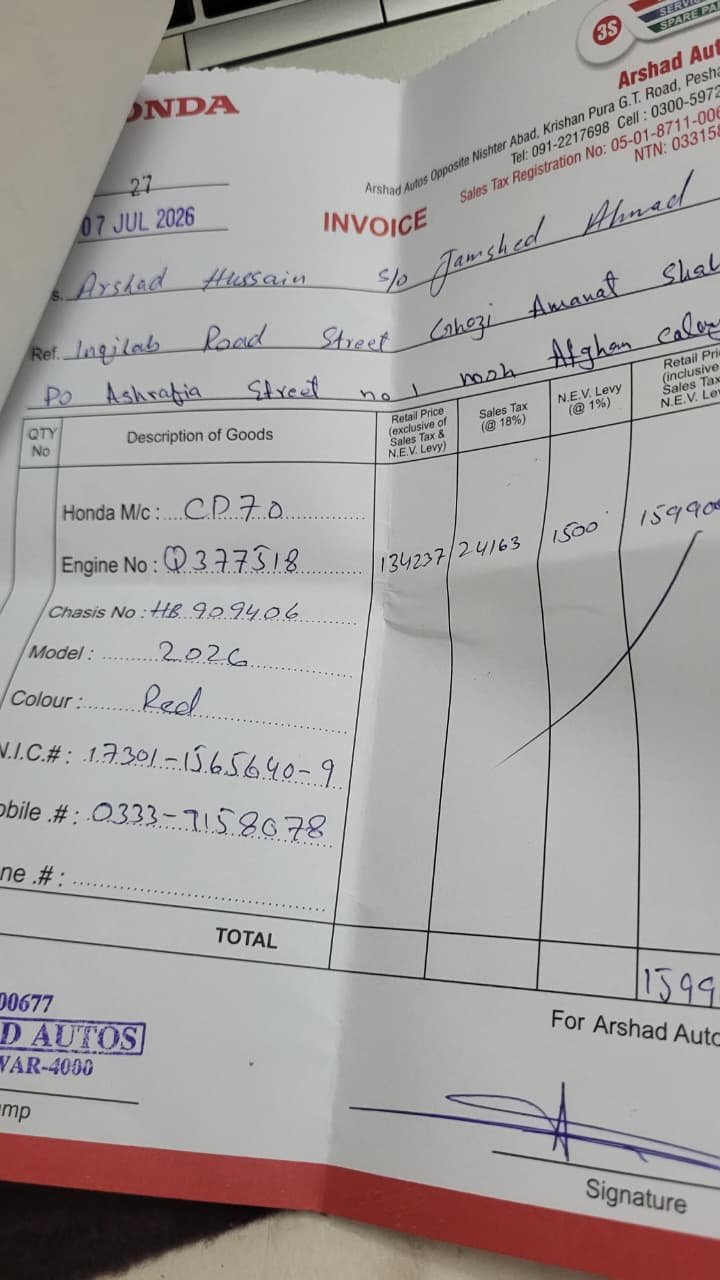 3S SERVIC
SPARE PA
ONDA
Arshad Aut
Arshad Autos Opposite Nishter Abad, Krishan Pura G.T. Road, Pesha
Tel: 091-2217698 Cell : 0300-5972
Sales Tax Registration No: 05-01-8711-006
NTN: 033158
27
07 JUL 2026
INVOICE
s. Arshad Hussain S/o Jamshed Ahmad
Ref. Inqilab Road Street Ghozi Amanat Shah
Po Ashrafia Street no 1 moh Afghan colony
QTY No
Description of Goods
Retail Price (exclusive of Sales Tax & N.E.V. Levy)
Sales Tax (@ 18%)
N.E.V. Levy (@ 1%)
Retail Pri (inclusive Sales Tax N.E.V. Lev
Honda M/c : CD70
Engine No : Q377518 134237 24163 1500 159900
Chasis No : HB 909406
Model : 2026
Colour : Red
N.I.C.# : 17301-1565640-9
obile .# : 0333-9158078
ne .# :
TOTAL 1599
00677
D AUTOS
WAR-4000
For Arshad Auto
mp
Signature